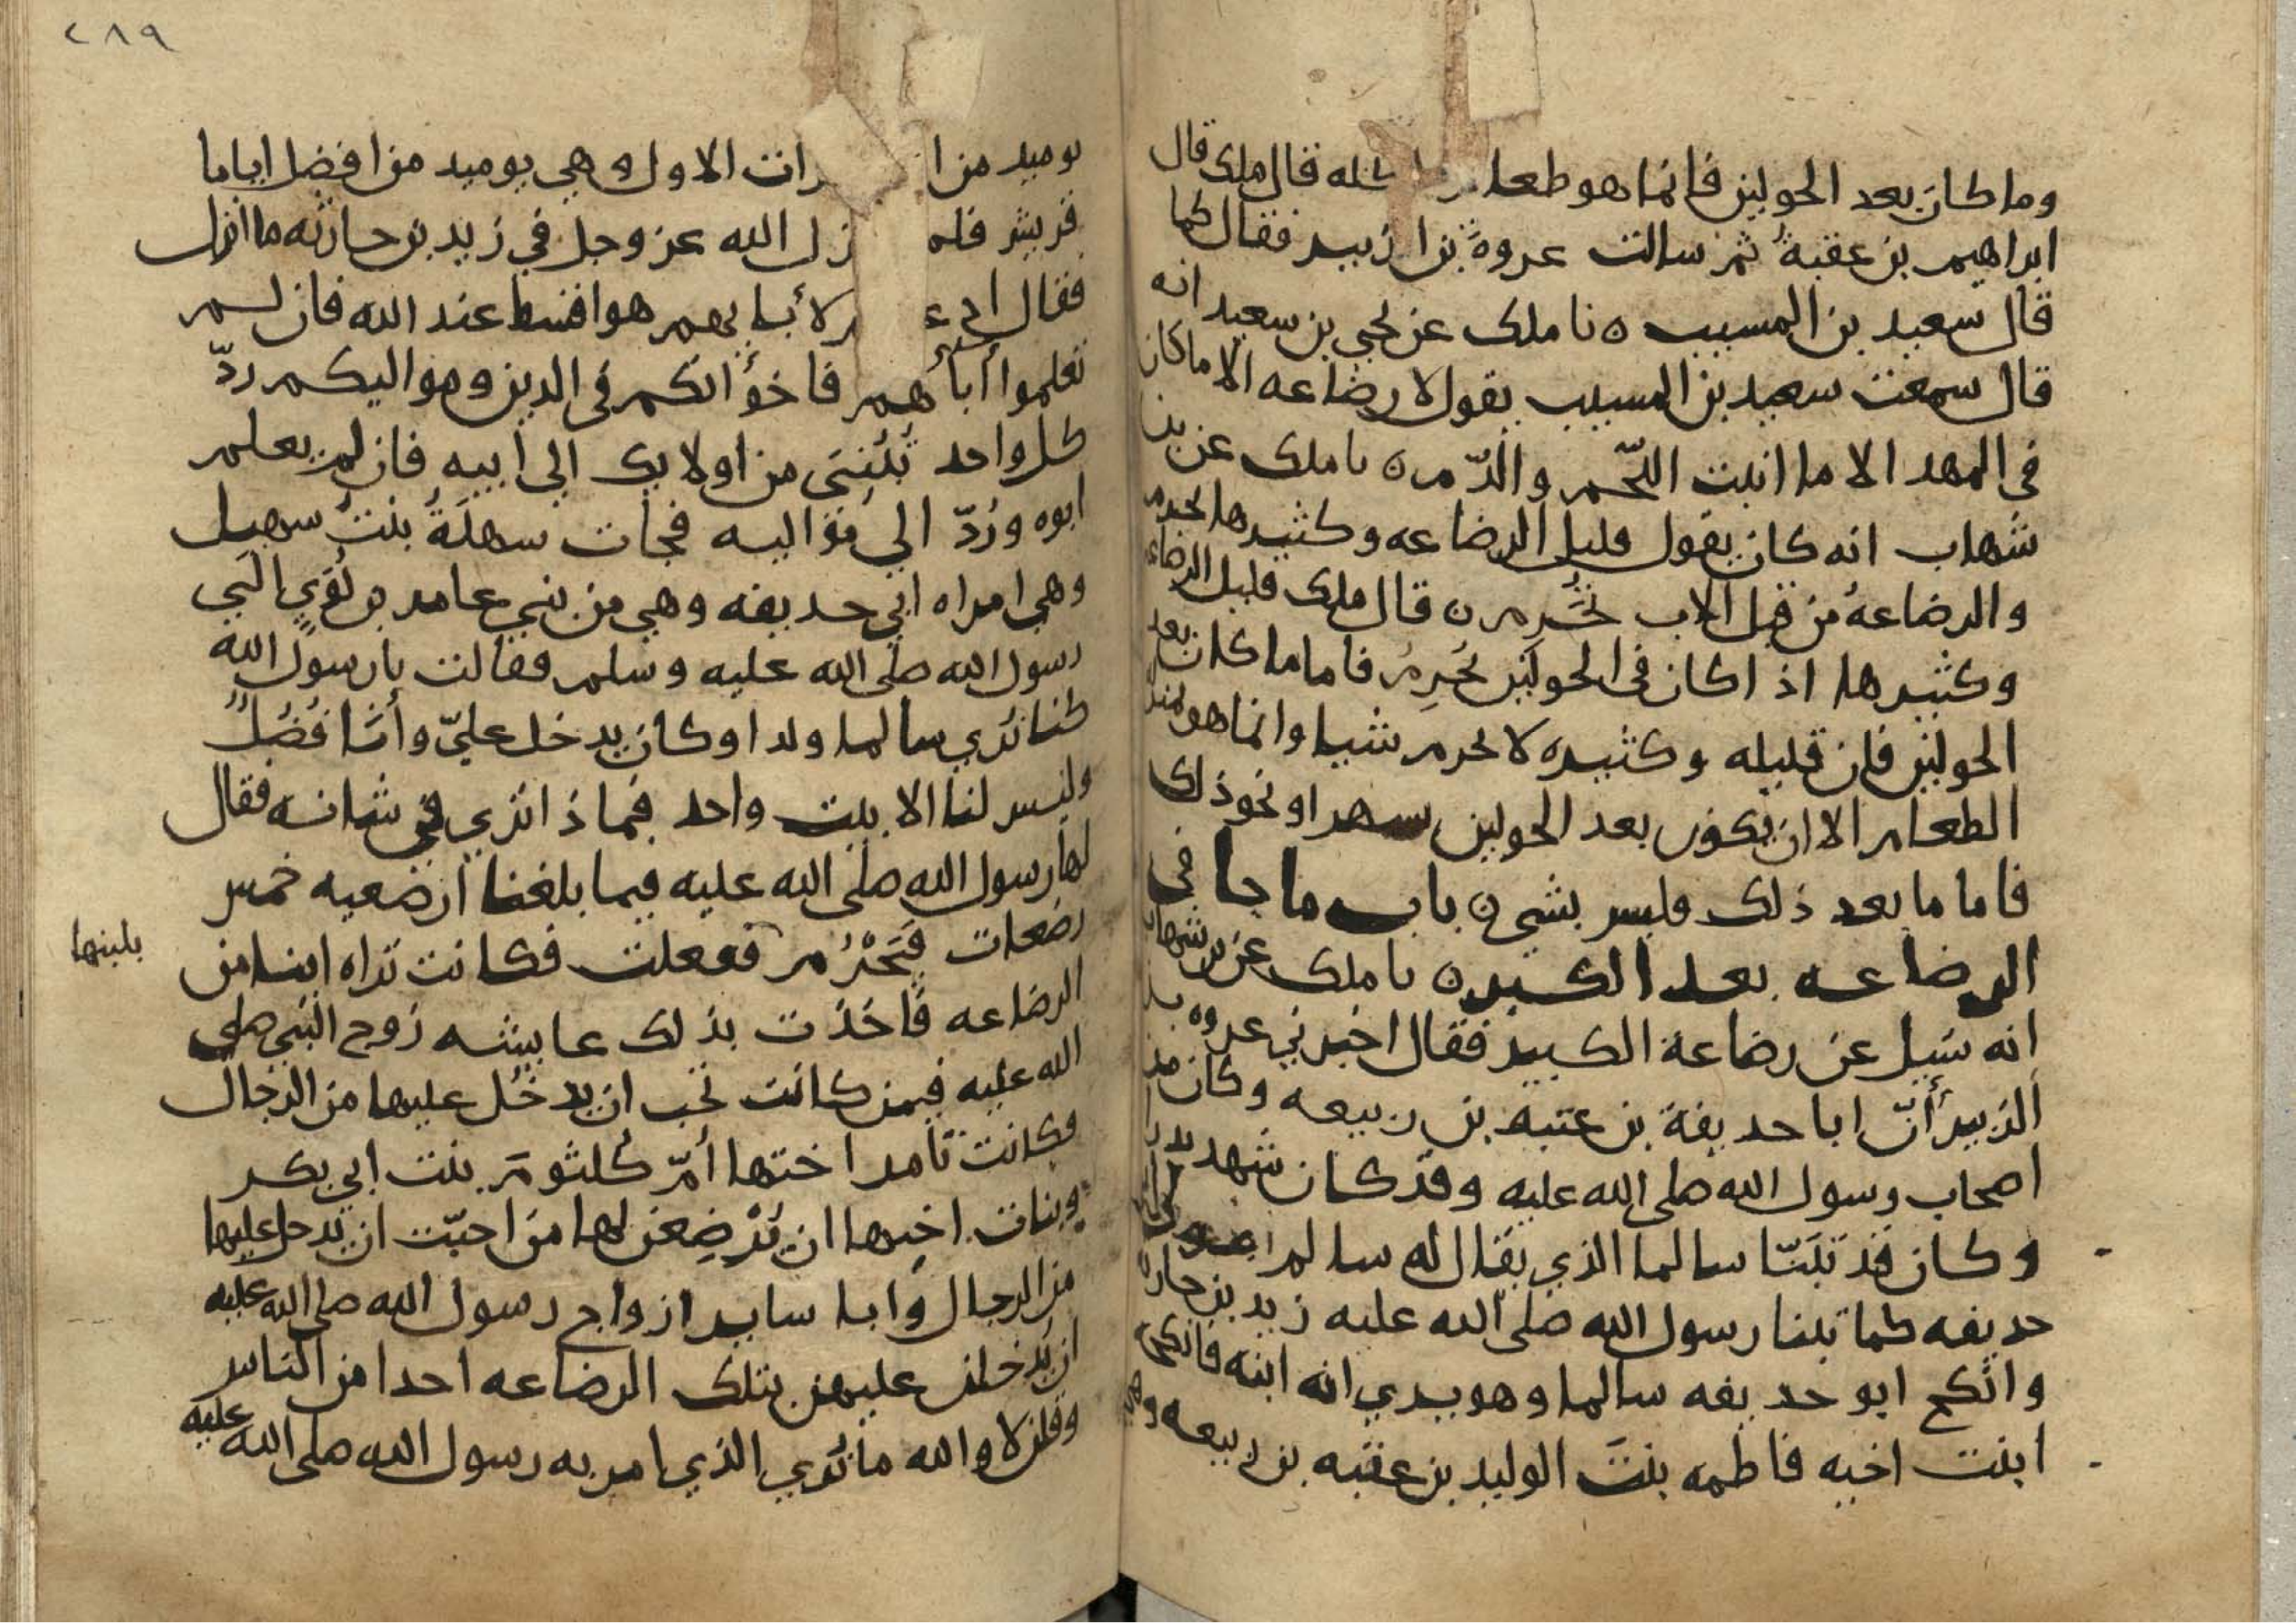 وما كان بعد الحولين فانما هو طعام كله قال ملك قال
ابراهيم بن عقبة ثم سالت عروة بن الزبير فقال كما
قال سعيد بن المسيب ه نا ملك عن يحيى بن سعيد انه
قال سمعت سعيد بن المسيب يقول لا رضاعه الا ما كان
في المهد الا ما انبت اللحّم والدّم ه نا ملك عن بن
شهاب انه كان يقول قليل الرضاعه وكثيرها تحرم
والرضاعهُ من قبل الاب تُحَرِم ه قال ملك قليل الرضاعه
وكثيرها اذا كان في الحولين يُحَرِمُ فاما ما كان بعد
الحولين فان قليله وكثيره لا يحرم شيا وانما هو بمنزلة
الطعام الا ان يكون بعد الحولين بشهر او نحو ذلك
فاما ما بعد ذلك فليس بشي ه باب ما جا في
الرضاعه بعد الكبر ه نا ملك عن بن شهاب
انه سُيل عن رضاعة الكبير فقال اخبرني عروه بن
الزبير أنّ ابا حديفة بن عتبه بن ربيعه وكان من
اصحاب رسول الله صلى الله عليه وقد كان شهد بدرا
وكان قد تبَنّا سالما الذي يقال له سالم مولى ابي
حديفه كما تبنا رسول الله صلى الله عليه زيد بن حارثه
وانكح ابو حديفه سالما وهو يري انه ابنه فانكحه
ابنت اخيه فاطمه بنت الوليد بن عقبه بن ربيعه وهي
٢٨٩
يوميد من ا رات الاول وهي يوميد من افضل اياما
قريش فلم زل الله عز وجل في زيد بن حارثه ما انزل
فقال ادع م لأبايهم هو اقسط عند الله فان لم
تعلموا أبأهم فاخوٰانكم في الدين وهواليكم ردّ
كل واحد تُبُنِيَ من اولايك الي ابيه فان لم يعلم
ابوه ورُدّ الي مواليه فجات سهلَةُ بنتُ سهيل
وهي امراه ابي حديفه وهي من بني عامر بن لُؤيٍ الي
رسول الله صلى الله عليه وسلم فقالت يا رسول الله
كنا نُري سالما ولدا وكان يدخل عليّ وأنا فُضُلٌ
وليس لنا الا بيت واحد فماذا تري في شانه فقال
لها رسول الله صلى الله عليه فيما بلغنا ارضعيه خمس
رضعات فَيَحْرُم ففعلت فكانت تراه ابنا من
بلبنها
الرضاعه فاخذت بذلك عايشه زوج النبي صلى
الله عليه فيمن كانت تحب ان يدخُل عليها من الرجال
فكانت تامر اختها أمّ كلثومَ بنت ابي بكر
وبنات اخيها ان يُرْضِعن لها من احبّت ان يدخل عليها
من الرجال وابا ساير ازواج رسول الله صلى الله عليه
ان يُدخلن عليهن بتلك الرضاعه احدا من الناس
وقلن لا والله ما نُري الذي امر به رسول الله صلى الله عليه